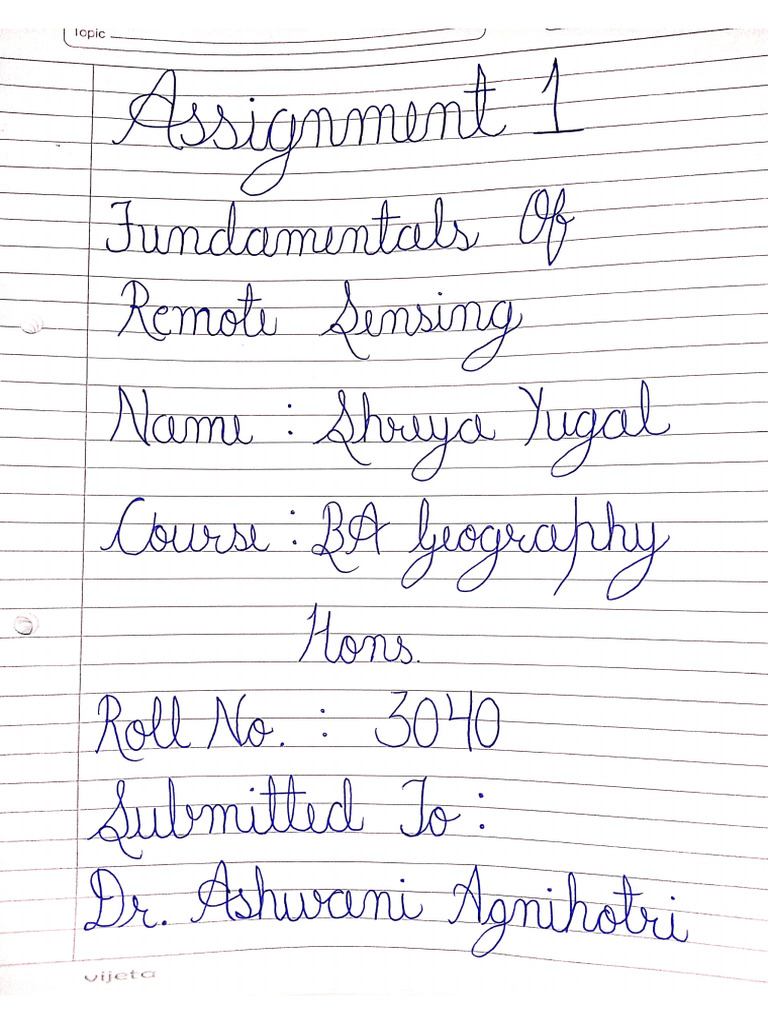 Topic
Assignment 1
Fundamentals Of
Remote Sensing
Name : Shreya Yugal
Course : BA Geography
Hons.
Roll No. : 3040
Submitted To :
Dr. Ashwani Agnihotri
vijeta